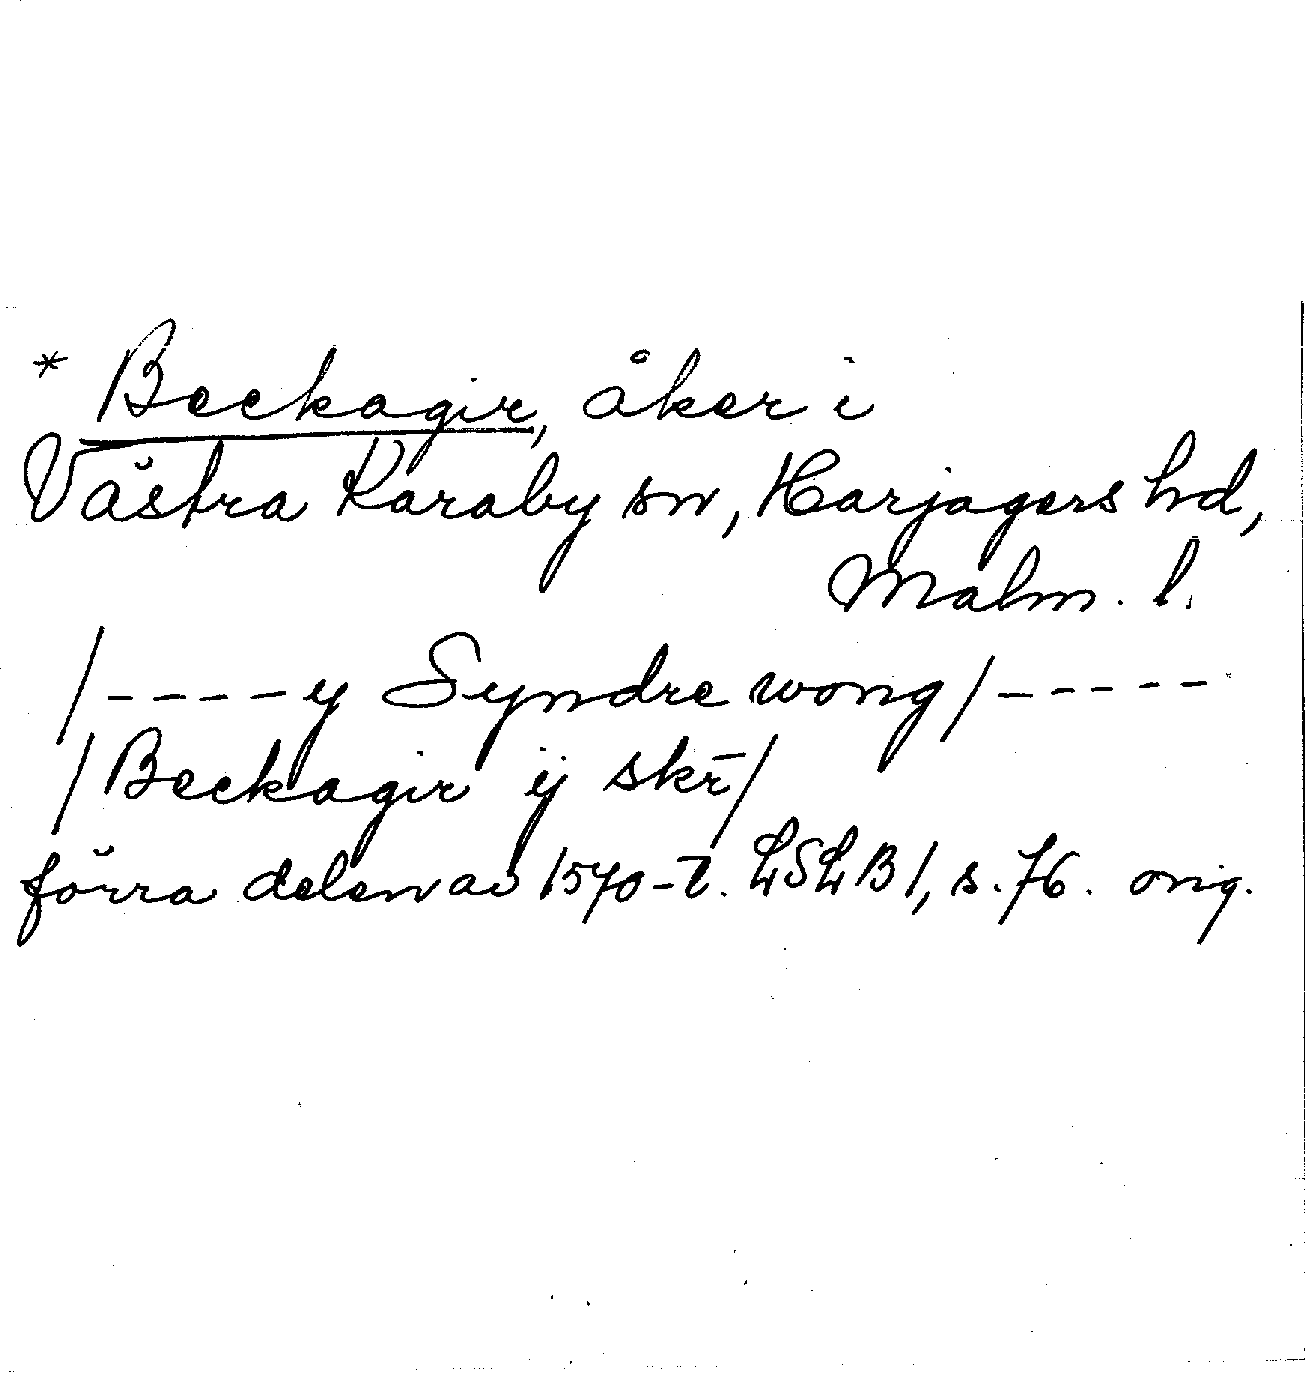 * Beckagir, åker i
Västra Karaby sn, Harjagers hd,
Malm. l.
/----y Syndre wong/-----
/Beckagir ij skr̄/
förra delen av 1570-t. LSLB 1, s. 76. orig.